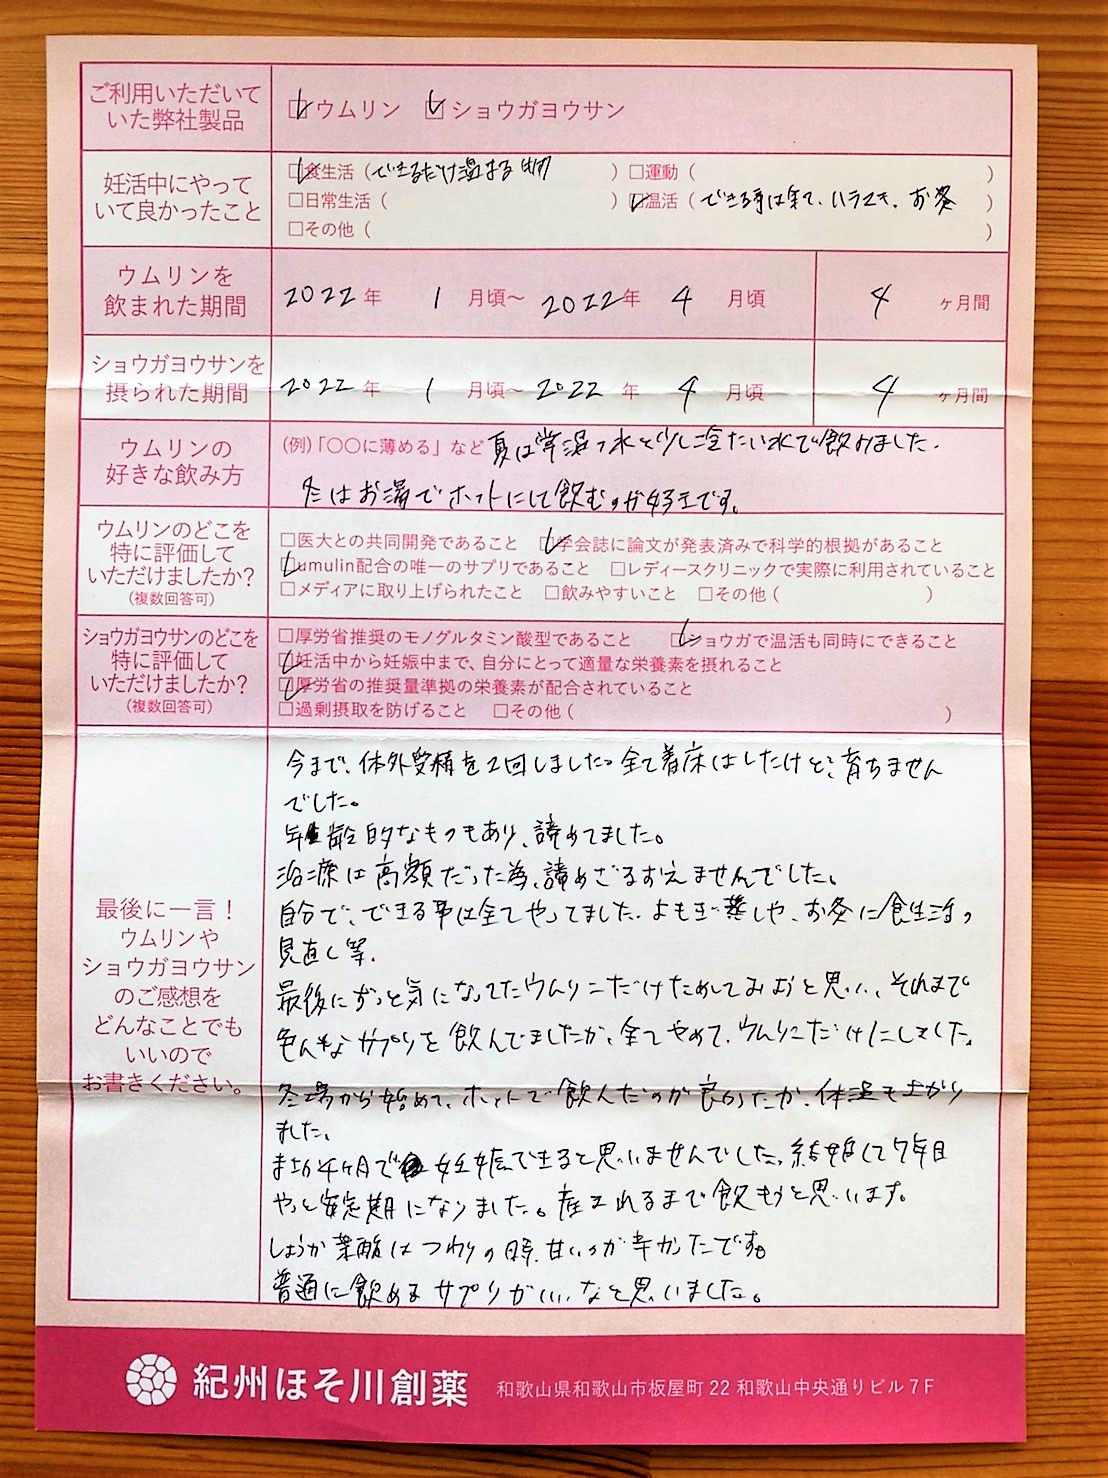 ご利用いただいて
いた弊社製品
☑ウムリン ☑ショウガヨウサン
妊活中にやって
いて良かったこと
☑食生活（できるだけ温まる物）□運動（ ）
□日常生活（ ）☑温活（できる事は全て、ハラマキ、お灸）
□その他（ ）
ウムリンを
飲まれた期間
2022年 1月頃〜2022年 4月頃 4ヶ月間
ショウガヨウサンを
摂られた期間
2022年 1月頃〜2022年 4月頃 4ヶ月間
ウムリンの
好きな飲み方
(例)「〇〇に薄める」など 夏は常温の水と少し冷たい水で飲みました.
冬はお湯でホットにして飲むのが好きです。
ウムリンのどこを
特に評価して
いただけましたか？
(複数回答可)
□医大との共同開発であること ☑学会誌に論文が発表済みで科学的根拠があること
☑umulin配合の唯一のサプリであること □レディースクリニックで実際に利用されていること
□メディアに取り上げられたこと □飲みやすいこと □その他（ ）
ショウガヨウサンのどこを
特に評価して
いただけましたか？
(複数回答可)
□厚労省推奨のモノグルタミン酸型であること ☑ショウガで温活も同時にできること
☑妊活中から妊娠中まで、自分にとって適量な栄養素を摂れること
☑厚労省の推奨量準拠の栄養素が配合されていること
□過剰摂取を防げること □その他（ ）
最後に一言！
ウムリンや
ショウガヨウサン
のご感想を
どんなことでも
いいので
お書きください。
今まで、体外受精を2回しました。全て着床はしたけど、育ちません
でした。
年齢的なものもあり、諦めてました。
治療は高額だった為、諦めざるおえませんでした。
自分で、できる事は全てやってました. よもぎ蒸しや、お灸に食生活の
見直し等.
最後にずっと気になってたウムリンだけためしてみようと思い、それまで
色んなサプリを飲んでましたが、全てやめて、ウムリンだけにしました。
冬場から始めて、ホットで飲んだのが良かったか、体温も上がり
ました。
まさか4ヶ月で妊娠できると思いませんでした。結婚して7年目
やっと安定期になりました。産まれるまで飲もうと思います。
しょうが葉酸はつわりの時、甘いのが辛かったです。
普通に飲めるサプリがいいなと思いました。
紀州ほそ川創薬 和歌山県和歌山市板屋町22 和歌山中央通りビル7F